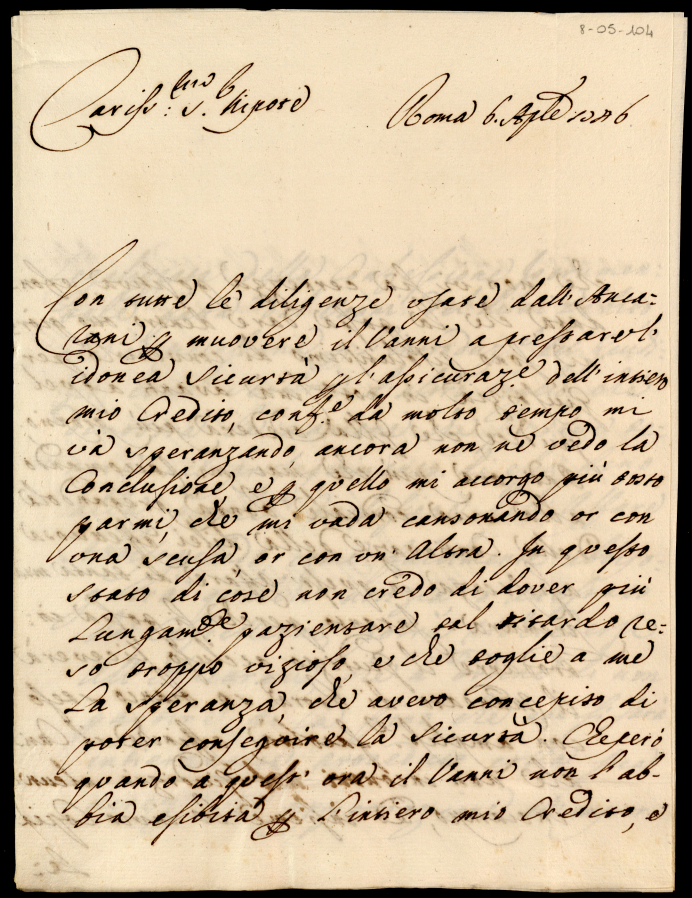 8-05-104
Cariss:mo S.r Nipote Roma 6. Aple 1746
Con tutte le diligenze usate dall'Anca=
rani p muovere il Vanni a prestare l'
idonea sicurtà p l'assicuraz.e dell'intiero
mio Credito, conf.e da molto tempo mi
và speranzando, ancora non ne vedo la
Conclusione, e p quello mi accorgo più tosto
parmi, che mi vada canzonando or con
una scusa, or con un'Altra. In questo
stato di cose non credo di dover più
Lungam.te pazientare tal ritardo re=
so troppo vizioso, e che toglie a me
La speranza, che avevo concepito di
poter conseguire la sicurtà. Epperò
quando a quest'ora il Vanni non l'ab-
bia esibita p L'intiero mio Credito, e